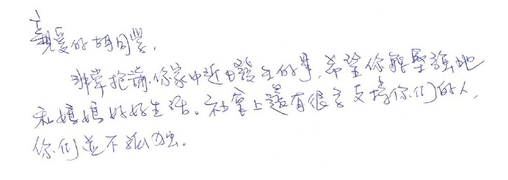 親愛的胡同學,
非常抱歉你家中近日發生的事,希望你能堅強地
和媽媽好好生活。社會上還有很多支持你们的人,
你们並不孤独。